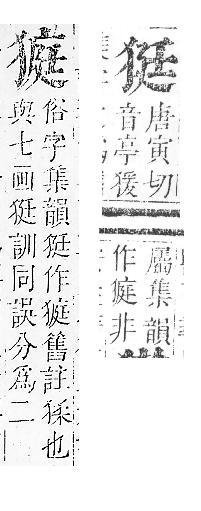 㹶
唐寅切
音亭猨
屬集韻
作非
俗字集韻㹶作舊註猱也
與七画㹶訓同誤分爲二